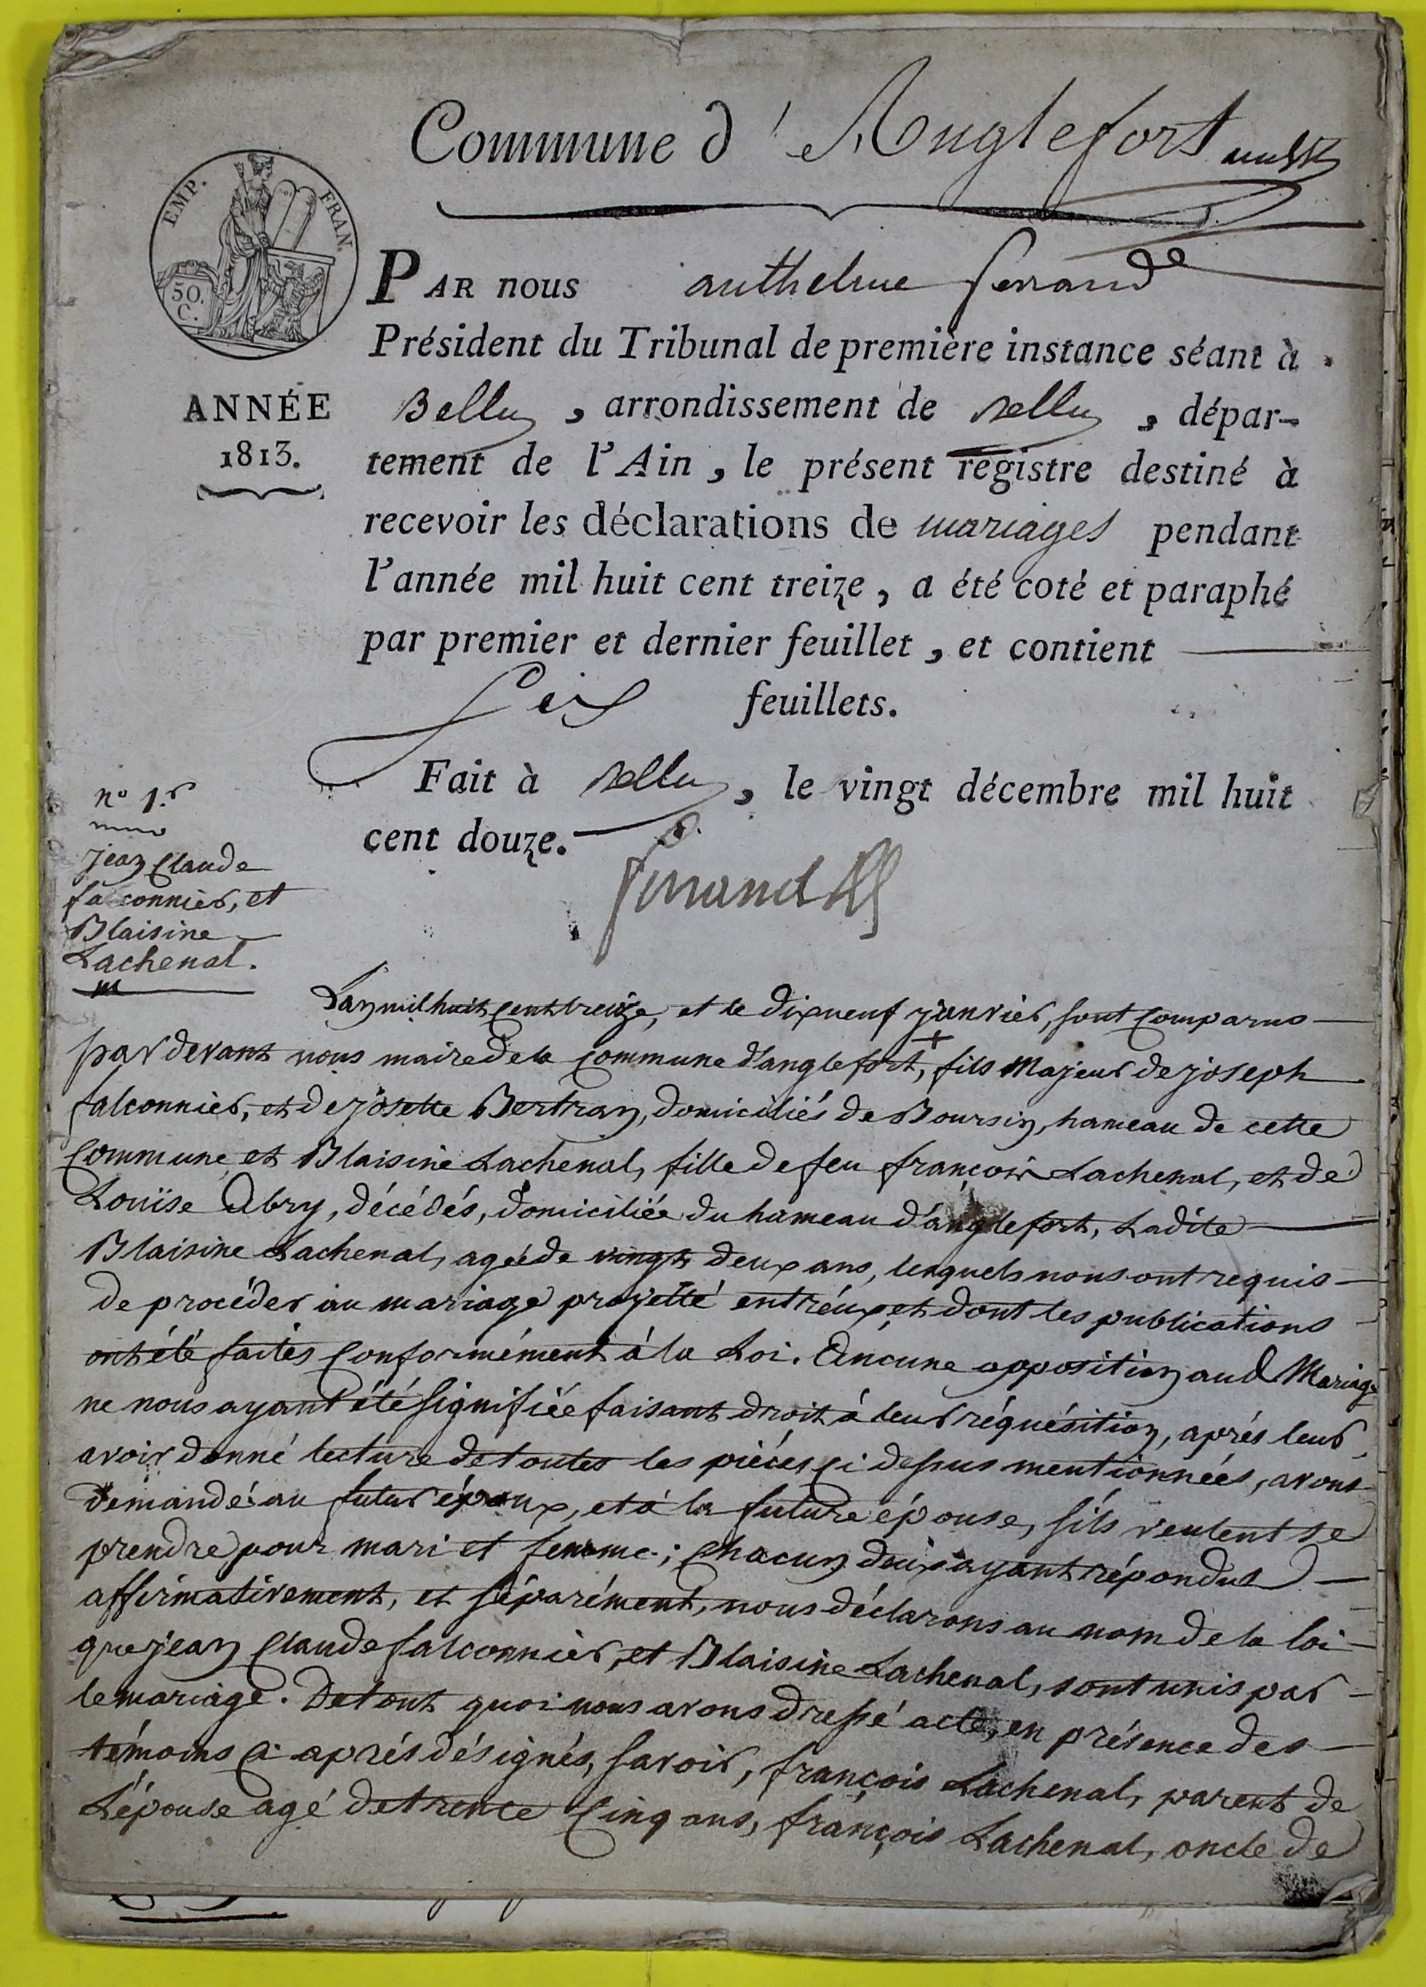 Commune d'Anglefort
EMP. FRAN.
50.
C.
PAR nous anthelme ferrand
Président du Tribunal de première instance séant à
ANNÉE
1813.
Belley, arrondissement de Belley, dépar-
tement de l'Ain, le présent registre destiné à
recevoir les déclarations de mariages pendant
l'année mil huit cent treize, a été coté et paraphé
par premier et dernier feuillet, et contient
six feuillets.
Fait à Belley, le vingt décembre mil huit
cent douze.
ferrand
n° 1.r
jean Claude
falconnier, et
Blaisine
Lachenal.
L'an mil huit cent treize, et le dix neuf janvier, sont comparus
par devant nous maire de la commune d'anglefort,+ fils majeur de joseph
falconnier, et de josette Bertran, domiciliés de Boursin, hameau de cette
commune, et Blaisine Lachenal, fille de feu françois Lachenal, et de
Louïse Abry, décédés, domiciliée du hameau d'anglefort, Ladite
Blaisine Lachenal, agée de vingt deux ans, lesquels nous ont requis
de procéder au mariage projetté entréux, et dont les publications
ont été faites conformément à la Loi. Aucune opposition aud Mariage
ne nous ayant été signifiée faisant droit à leur réquésition, aprés leur
avoir donné lecture de toutes les piéces ci dessus mentionnées, avons
demandé au futur époux, et à la future épouse, s'ils veulent se
prendre pour mari et femme; chacun deux ayant répondus
affirmativement, et séparément, nous déclarons au nom de la loi
que jean Claude falconnier, et Blaisine Lachenal, sont unis par
le mariage. De tout quoi nous avons dressé acte, en présence des
témoins ci aprés désignés, savoir, françois Lachenal, parent de
L'épouse agé de trente cinq ans, françois Lachenal, oncle de